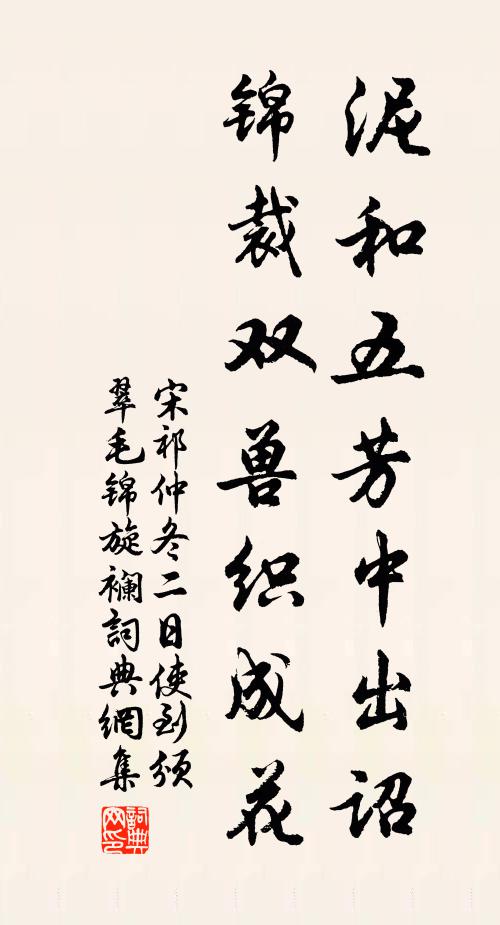 泥和五芳中出诏
锦裁双兽织成花
宋祁仲冬二日使到颁
翠毛锦旋襕詞典網集
詞典網印